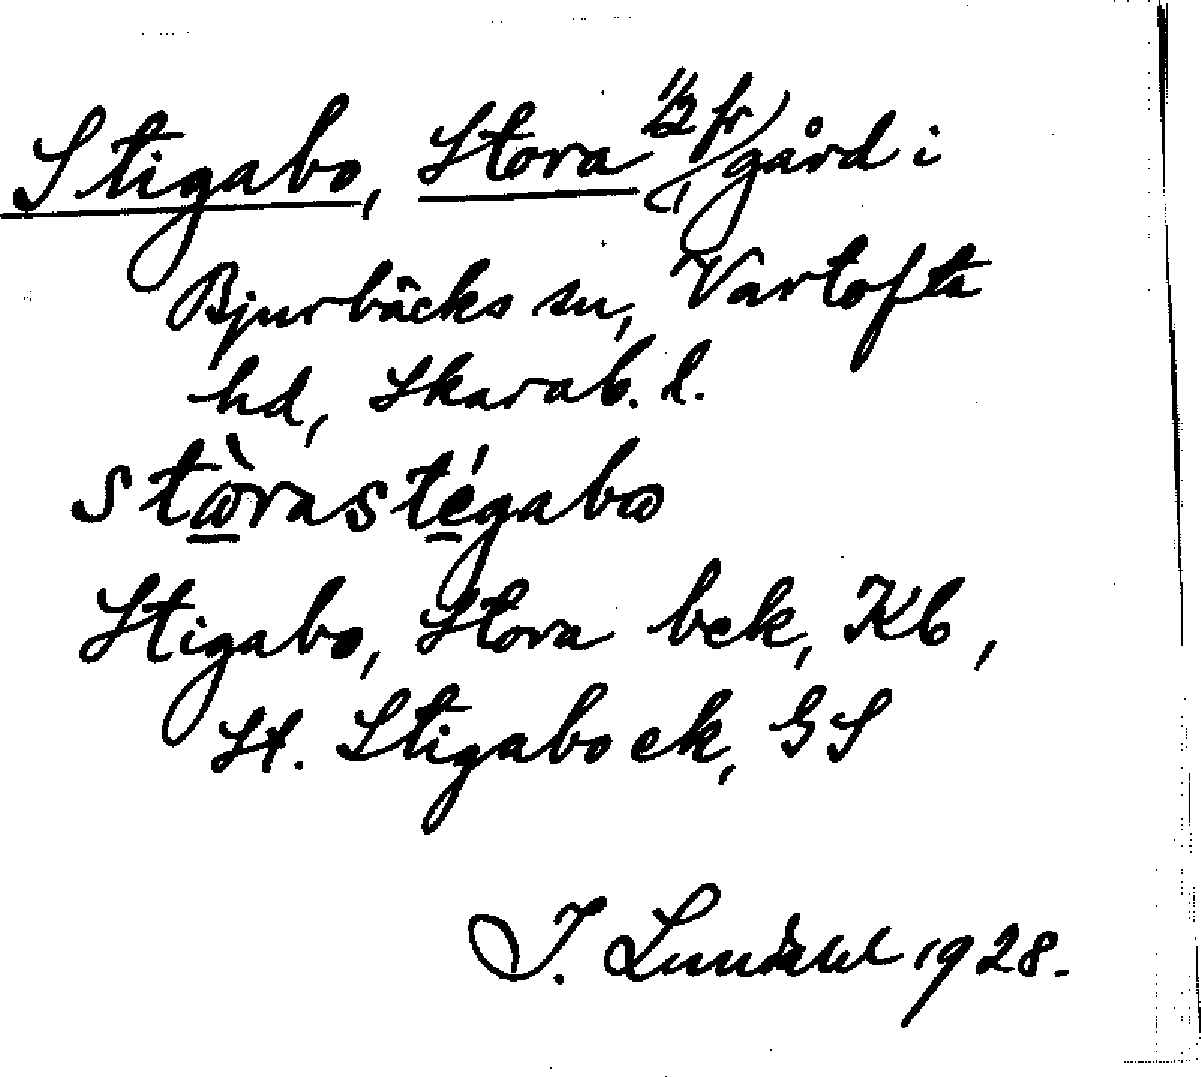 Stigabo, Stora 1/2 fr, gård i
Bjurbäcks sn, Vartofta
hd, Skarab. l.
stὼ̱rasté̱gabω
Stigabo, Stora bek, Kb,
St. Stigabo ek, GS
I. Lundahl 1928.